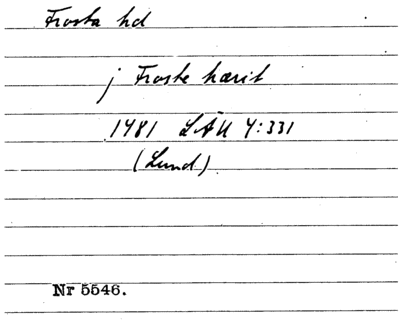 Frosta hd
j Froste hærit
1481 LÄU 4:331
(Lund)
Nr 5546.